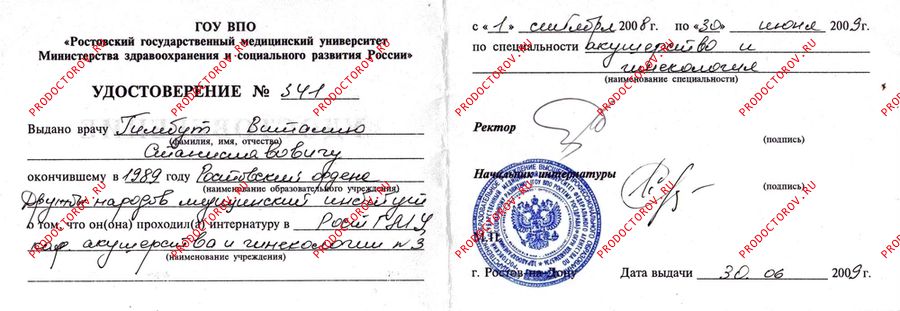 ГОУ ВПО
«Ростовский государственный медицинский университет
Министерства здравоохранения и социального развития России»
УДОСТОВЕРЕНИЕ № 341
Выдано врачу Гимбут Виталию
(фамилия, имя, отчество)
Станиславовичу
окончившему в 1989 году Ростовский ордена
(наименование образовательного учреждения)
Дружбы народов медицинский институт
о том, что он(она) проходил(а) интернатуру в РостГМУ,
каф. акушерства и гинекологии №3
(наименование учреждения)
с «1» сентября 2008г. по «30» июня 2009г.
по специальности акушерство и
гинекология
(наименование специальности)
Ректор
(подпись)
Начальник интернатуры
(подпись)
М.П.
г. Ростов-на-Дону Дата выдачи 30.06 2009г.
PRODOCTOROV.RU